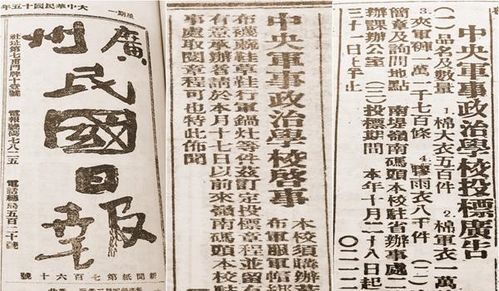 大中華民國十五年
廣州民國日報
社址第七甫門牌十壹號 電報號碼七八二五 電話總局五百二十號
中央軍事政治學校啓事
本校須購辦
布軍
鞋草鞋行軍鍋灶等件茲訂定投標章程並留
有意承辦者請
本月十七日以前來
嶺南碼頭本校駐
事處取閱章程可也特此佈聞
中央軍事政治學校投標廣告
(一)品名及數量 1. 棉大衣五百件 2. 棉軍衣一萬
3. 夾軍褲一萬二千七百條 4. 膠雨衣八千件 (二)
簡章及詢問地點 南堤嶺南碼頭本校駐省辦事處
辦課辦公室 (三)投標期間 本年十月二十八日起
三十日上午止